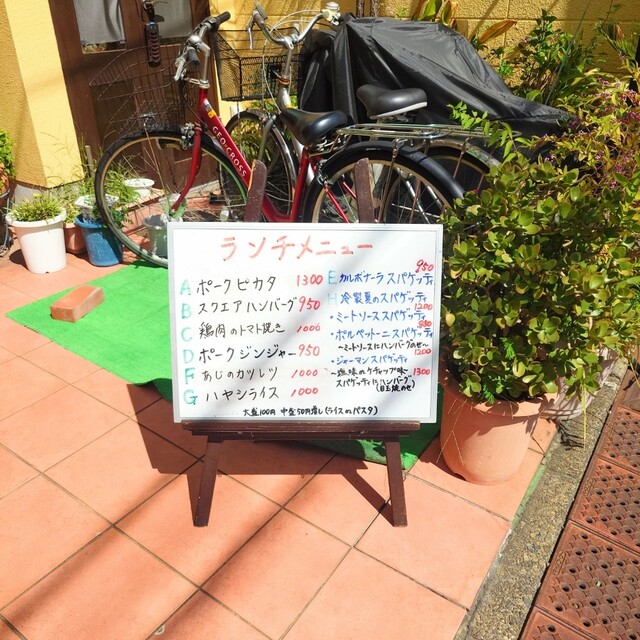 GEOCROSS
ランチメニュー
A ポークピカタ 1300
B スクエアハンバーグ 950
C 鶏肉のトマト焼き 1000
D ポークジンジャー 950
F あじのカツレツ 1000
G ハヤシライス 1000
E カルボナーラスパゲッティ 950
H 冷製夏のスパゲッティ
1200
・ミートソーススパゲッティ
・ポルペットーニスパゲッティ
〜ミートソースにハンバーグのせ〜 1200
・ジャーマンスパゲッティ
〜塩味のケチャップ味〜 1300
スパゲッティにハンバーグ
(目玉焼のせ)
大盛100円 中盛50円増し (ライスorパスタ)